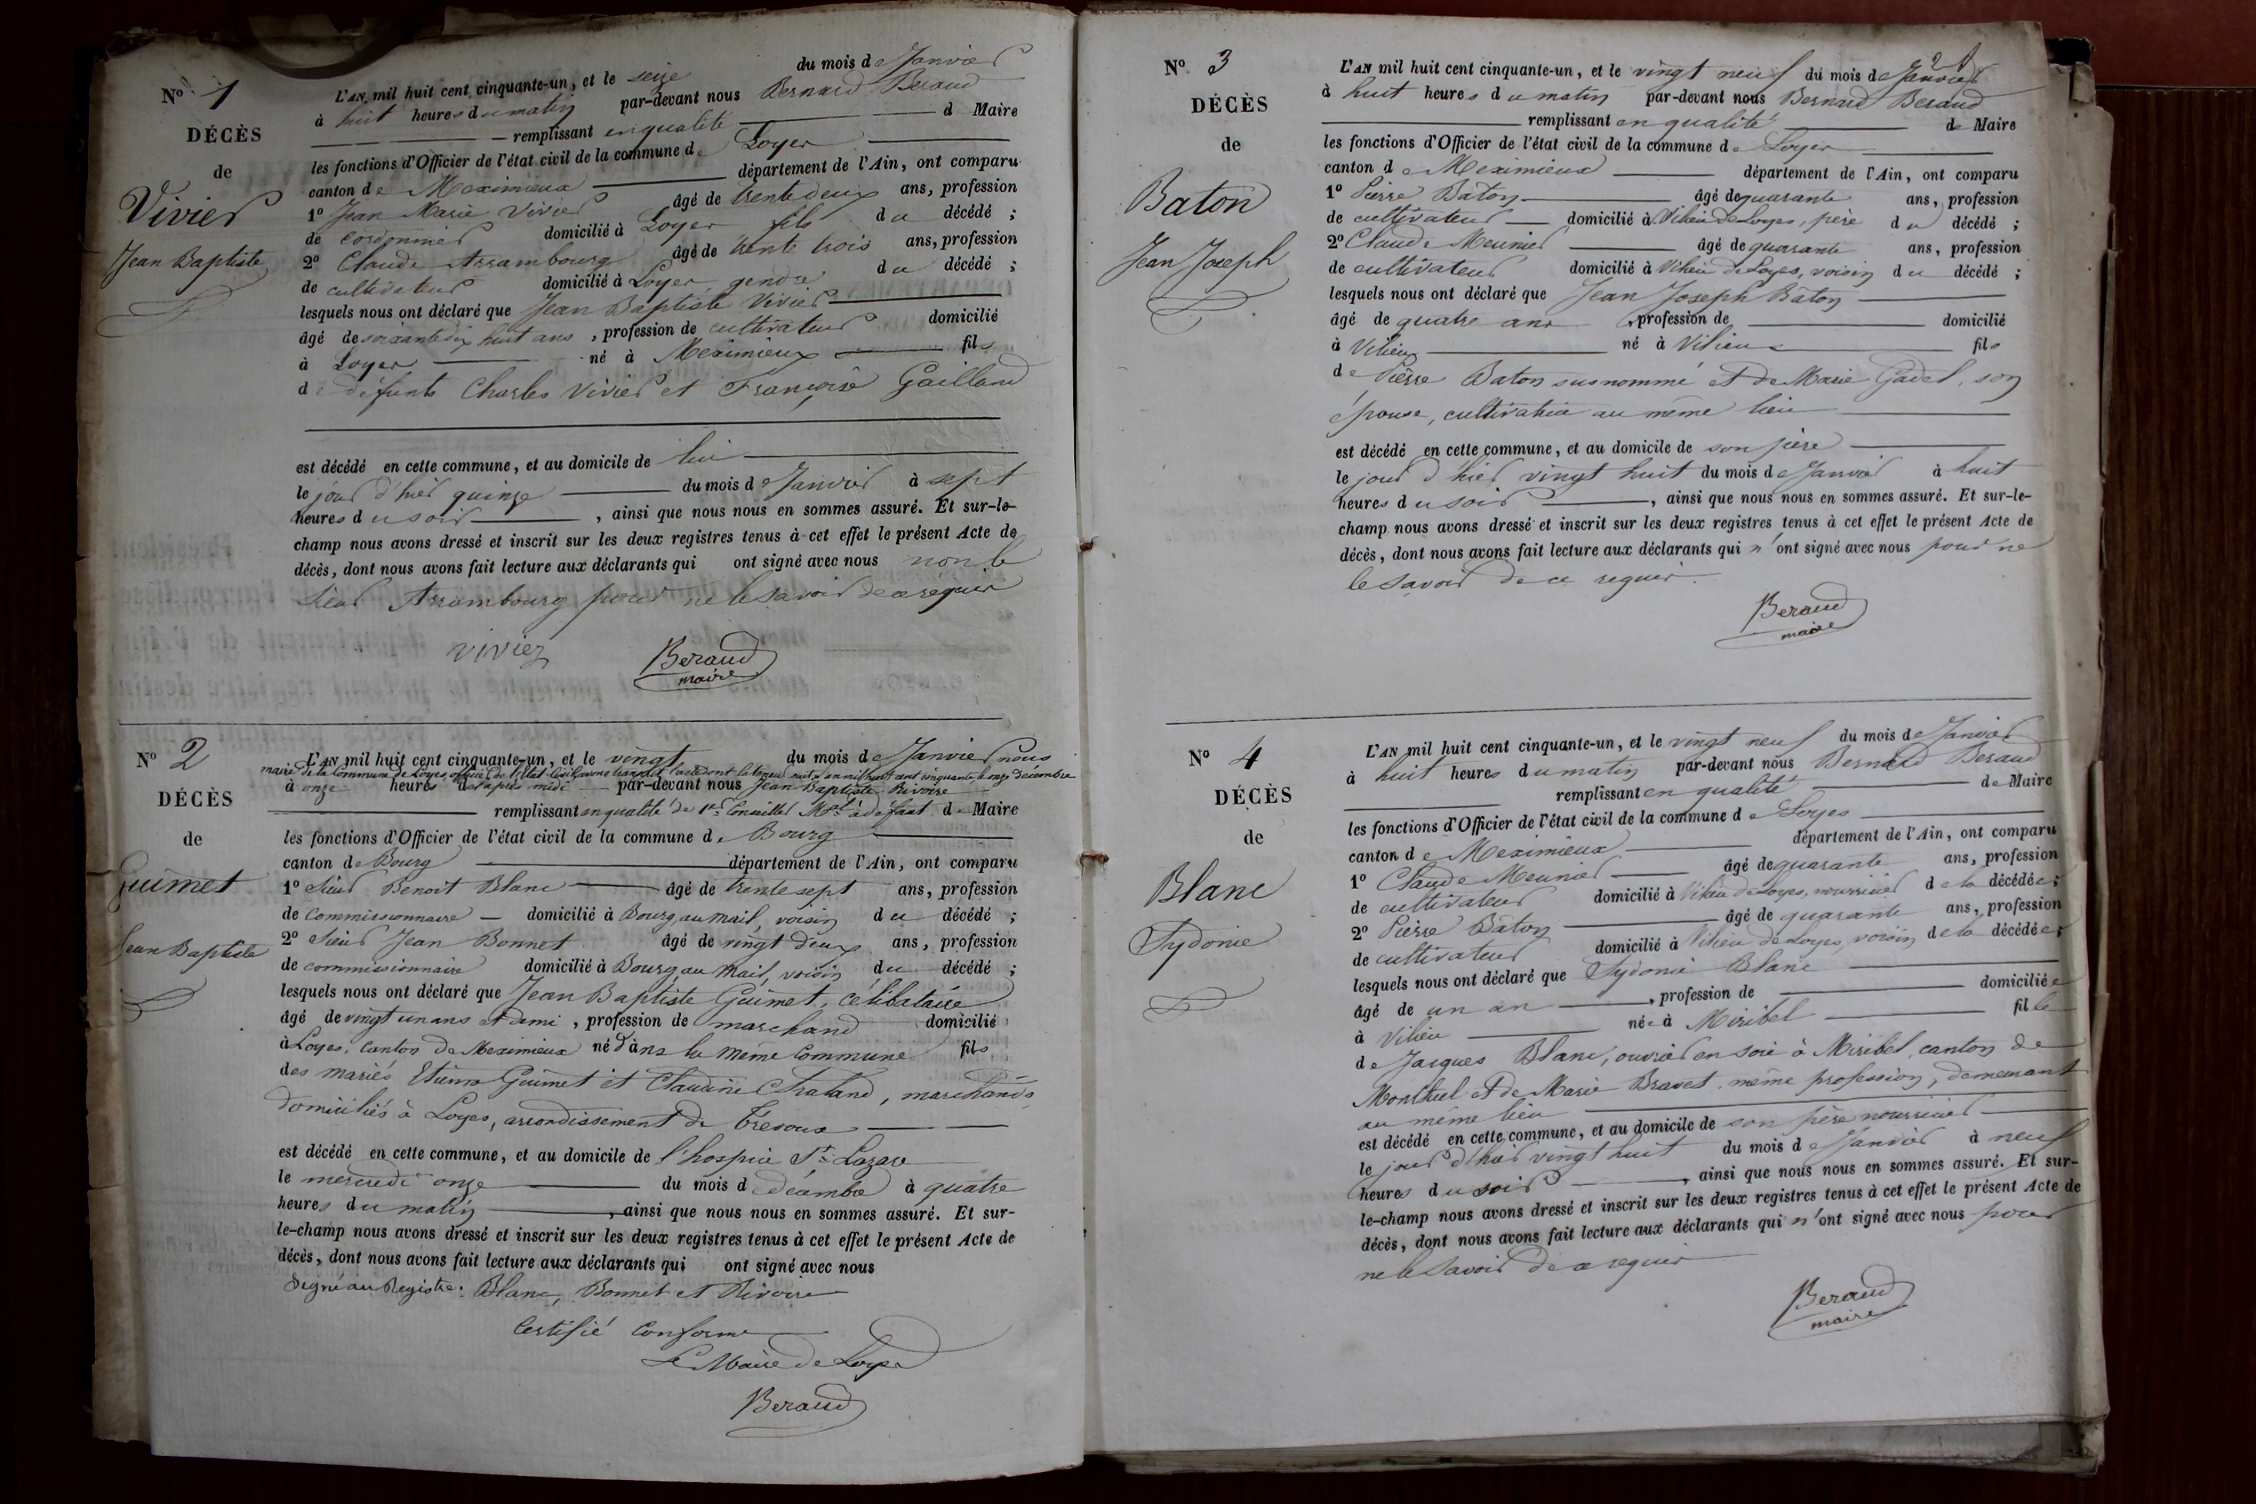 N° 1
DÉCÈS
de
Vivier
Jean Baptiste
L'AN mil huit cent cinquante-un, et le seize du mois de Janvier
à huit heures du matin par-devant nous Bernard Beraud
remplissant en qualité d Maire
les fonctions d'Officier de l'état civil de la commune de Loyes
canton de Meximieux département de l'Ain, ont comparu
1° Jean Marie Vivier âgé de trente deux ans, profession
de cordonnier domicilié à Loyes fils du décédé ;
2° Claude Arrambourg âgé de trente trois ans, profession
de cultivateur domicilié à Loyes, gendre du décédé ;
lesquels nous ont déclaré que Jean Baptiste Vivier
âgé de soixante dix huit ans, profession de cultivateur domicilié
à Loyes né à Meximieux fils
de défunts Charles Vivier et Françoise Gaillard
est décédé en cette commune, et au domicile de lui
le jour d'hier quinze du mois de Janvier à sept
heures du soir, ainsi que nous nous en sommes assuré. Et sur-le-
champ nous avons dressé et inscrit sur les deux registres tenus à cet effet le présent Acte de
décès, dont nous avons fait lecture aux déclarants qui ont signé avec nous non le
sieur Arrambourg pour ne le savoir de ce requis
vivier
Beraud
maire
N° 2
DÉCÈS
de
Guimet
Jean Baptiste
L'AN mil huit cent cinquante-un, et le vingt du mois de Janvier nous
maire de la Commune de Loyes, officier de l'état Civil avons transcrit l'acte dont la teneur suit: L'an mil huit cent cinquante, le onze Décembre
à onze heures d'après midi par-devant nous Jean Baptiste Rivoire
remplissant en qualité de 1er Conseiller Mpal à défaut de Maire
les fonctions d'Officier de l'état civil de la commune de Bourg
canton de Bourg département de l'Ain, ont comparu
1° Sieur Benoit Blanc âgé de trente sept ans, profession
de commissionnaire domicilié à Bourg, au mail, voisin du décédé ;
2° Sieur Jean Bonnet âgé de vingt deux ans, profession
de commissionnaire domicilié à Bourg au mail, voisin du décédé ;
lesquels nous ont déclaré que Jean Baptiste Guimet, célibataire
âgé de vingt un ans et demi, profession de marchand domicilié
à Loyes, canton de Meximieux né dans la même Commune fils
des mariés Etienne Guimet et Claudine Chaland, marchands
domiciliés à Loyes, arrondissement de Trevoux
est décédé en cette commune, et au domicile de l'hospice St Lazare
le mercredi onze du mois d décembre à quatre
heures du matin, ainsi que nous nous en sommes assuré. Et sur-
le-champ nous avons dressé et inscrit sur les deux registres tenus à cet effet le présent Acte de
décès, dont nous avons fait lecture aux déclarants qui ont signé avec nous
Signé au Registre : Blanc, Bonnet et Rivoire
Certifié Conforme
Le Maire de Loyes
Beraud
2
N° 3
DÉCÈS
de
Baton
Jean Joseph
L'AN mil huit cent cinquante-un, et le vingt neuf du mois de Janvier
à huit heures du matin par-devant nous Bernard Beraud
remplissant en qualité de Maire
les fonctions d'Officier de l'état civil de la commune de Loyes
canton de Meximieux département de l'Ain, ont comparu
1° Pierre Baton âgé de quarante ans, profession
de cultivateur domicilié à Vilieu de Loyes, père du décédé ;
2° Claude Meunier âgé de quarante ans, profession
de cultivateur domicilié à Vilieu de Loyes, voisin du décédé ;
lesquels nous ont déclaré que Jean Joseph Baton
âgé de quatre ans, profession de domicilié
à Vilieu né à Vilieu fils
de Pierre Baton susnommé et de Marie Gadel, son
épouse, cultivatrice au même lieu
est décédé en cette commune, et au domicile de son père
le jour d'hier vingt huit du mois de Janvier à huit
heures du soir, ainsi que nous nous en sommes assuré. Et sur-le-
champ nous avons dressé et inscrit sur les deux registres tenus à cet effet le présent Acte de
décès, dont nous avons fait lecture aux déclarants qui n'ont signé avec nous pour ne
le savoir de ce requis.
Beraud
maire
N° 4
DÉCÈS
de
Blanc
Sydonie
L'AN mil huit cent cinquante-un, et le vingt neuf du mois de Janvier
à huit heures du matin par-devant nous Bernard Beraud
remplissant en qualité de Maire
les fonctions d'Officier de l'état civil de la commune de Loyes
canton de Meximieux département de l'Ain, ont comparu
1° Claude Meunier âgé de quarante ans, profession
de cultivateur domicilié à Vilieu de Loyes, nourricier de la décédée ;
2° Pierre Baton âgé de quarante ans, profession
de cultivateur domicilié à Vilieu de Loyes, voisin de la décédée ;
lesquels nous ont déclaré que Sydonie Blanc
âgé de un an, profession de domiciliée
à Vilieu née à Miribel fille
de Jacques Blanc, ouvrier en soie à Miribel, canton de
Montluel et de Marie Bravet, même profession, demeurant
au même lieu
est décédé en cette commune, et au domicile de son père nourricier
le jour d'hier vingt huit du mois de Janvier à neuf
heures du soir, ainsi que nous nous en sommes assuré. Et sur-
le-champ nous avons dressé et inscrit sur les deux registres tenus à cet effet le présent Acte de
décès, dont nous avons fait lecture aux déclarants qui n'ont signé avec nous pour
ne le savoir de ce requis
Beraud
maire